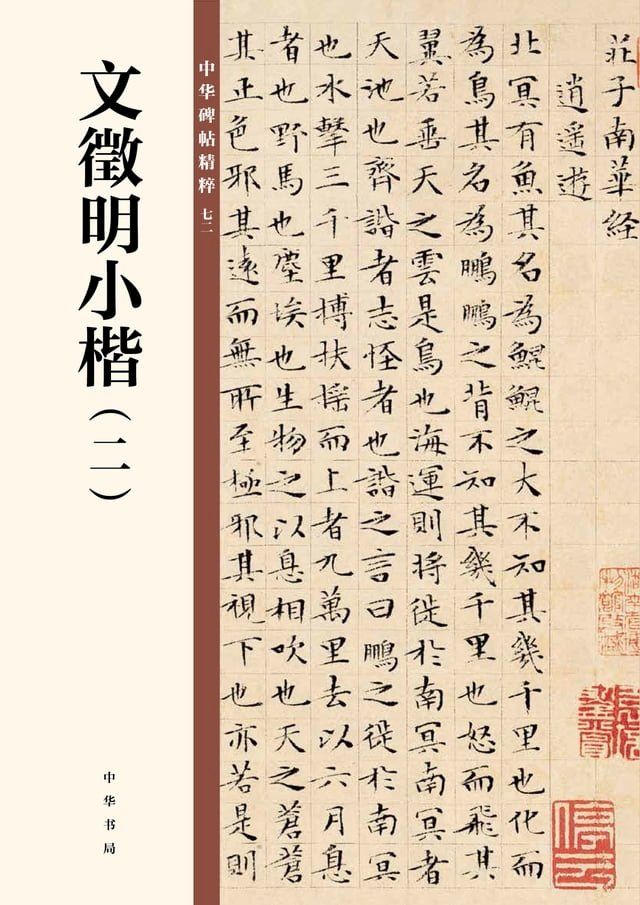 文徵明小楷(二)
中华书局
中华碑帖精粹 七二
莊子南華経
逍遥遊
北冥有魚其名為鯤鯤之大不知其幾千里也化而
為鳥其名為鵬鵬之背不知其幾千里也怒而飛其
翼若垂天之雲是鳥也海運則將徙於南冥南冥者
天池也齊諧者志怪者也諧之言曰鵬之徙於南冥
也水擊三千里搏扶摇而上者九萬里去以六月息
者也野馬也塵埃也生物之以息相吹也天之蒼蒼
其正色邪其遠而無所至極邪其視下也亦若是則